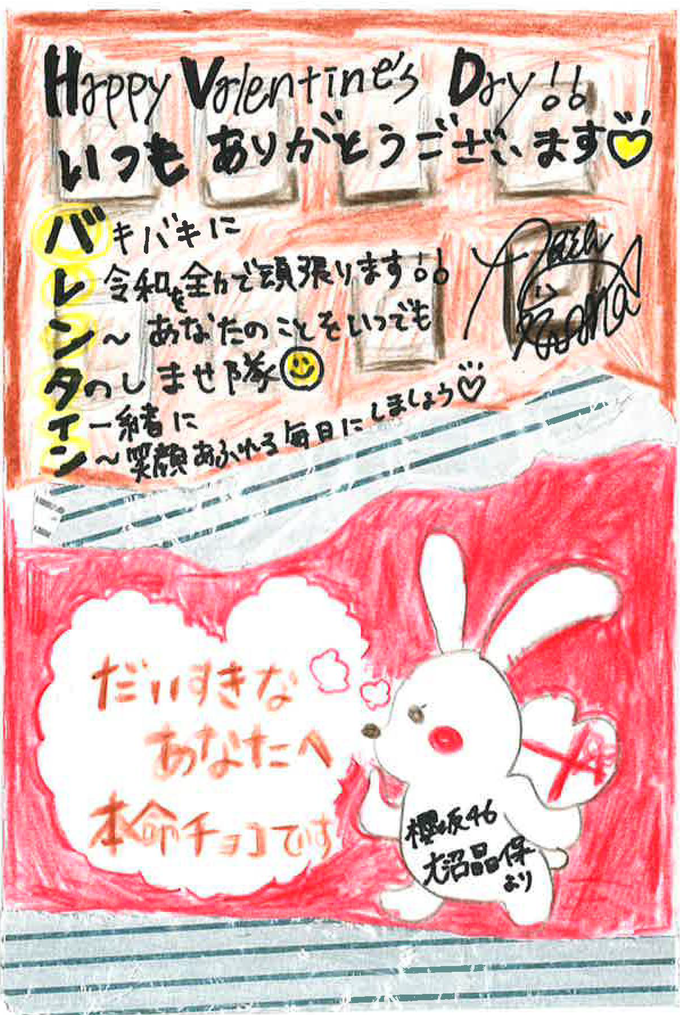 Happy Valentine's Day!!
いつもありがとうございます♡
バキバキに
レ令和を全力で頑張ります!!
ン〜あなたのことをいつでも
タのしませ隊
イ一緒に
ン〜笑顔あふれる毎日にしましょう♡
だいすきな
あなたへ
本命チョコです
櫻坂46
大沼晶保
より